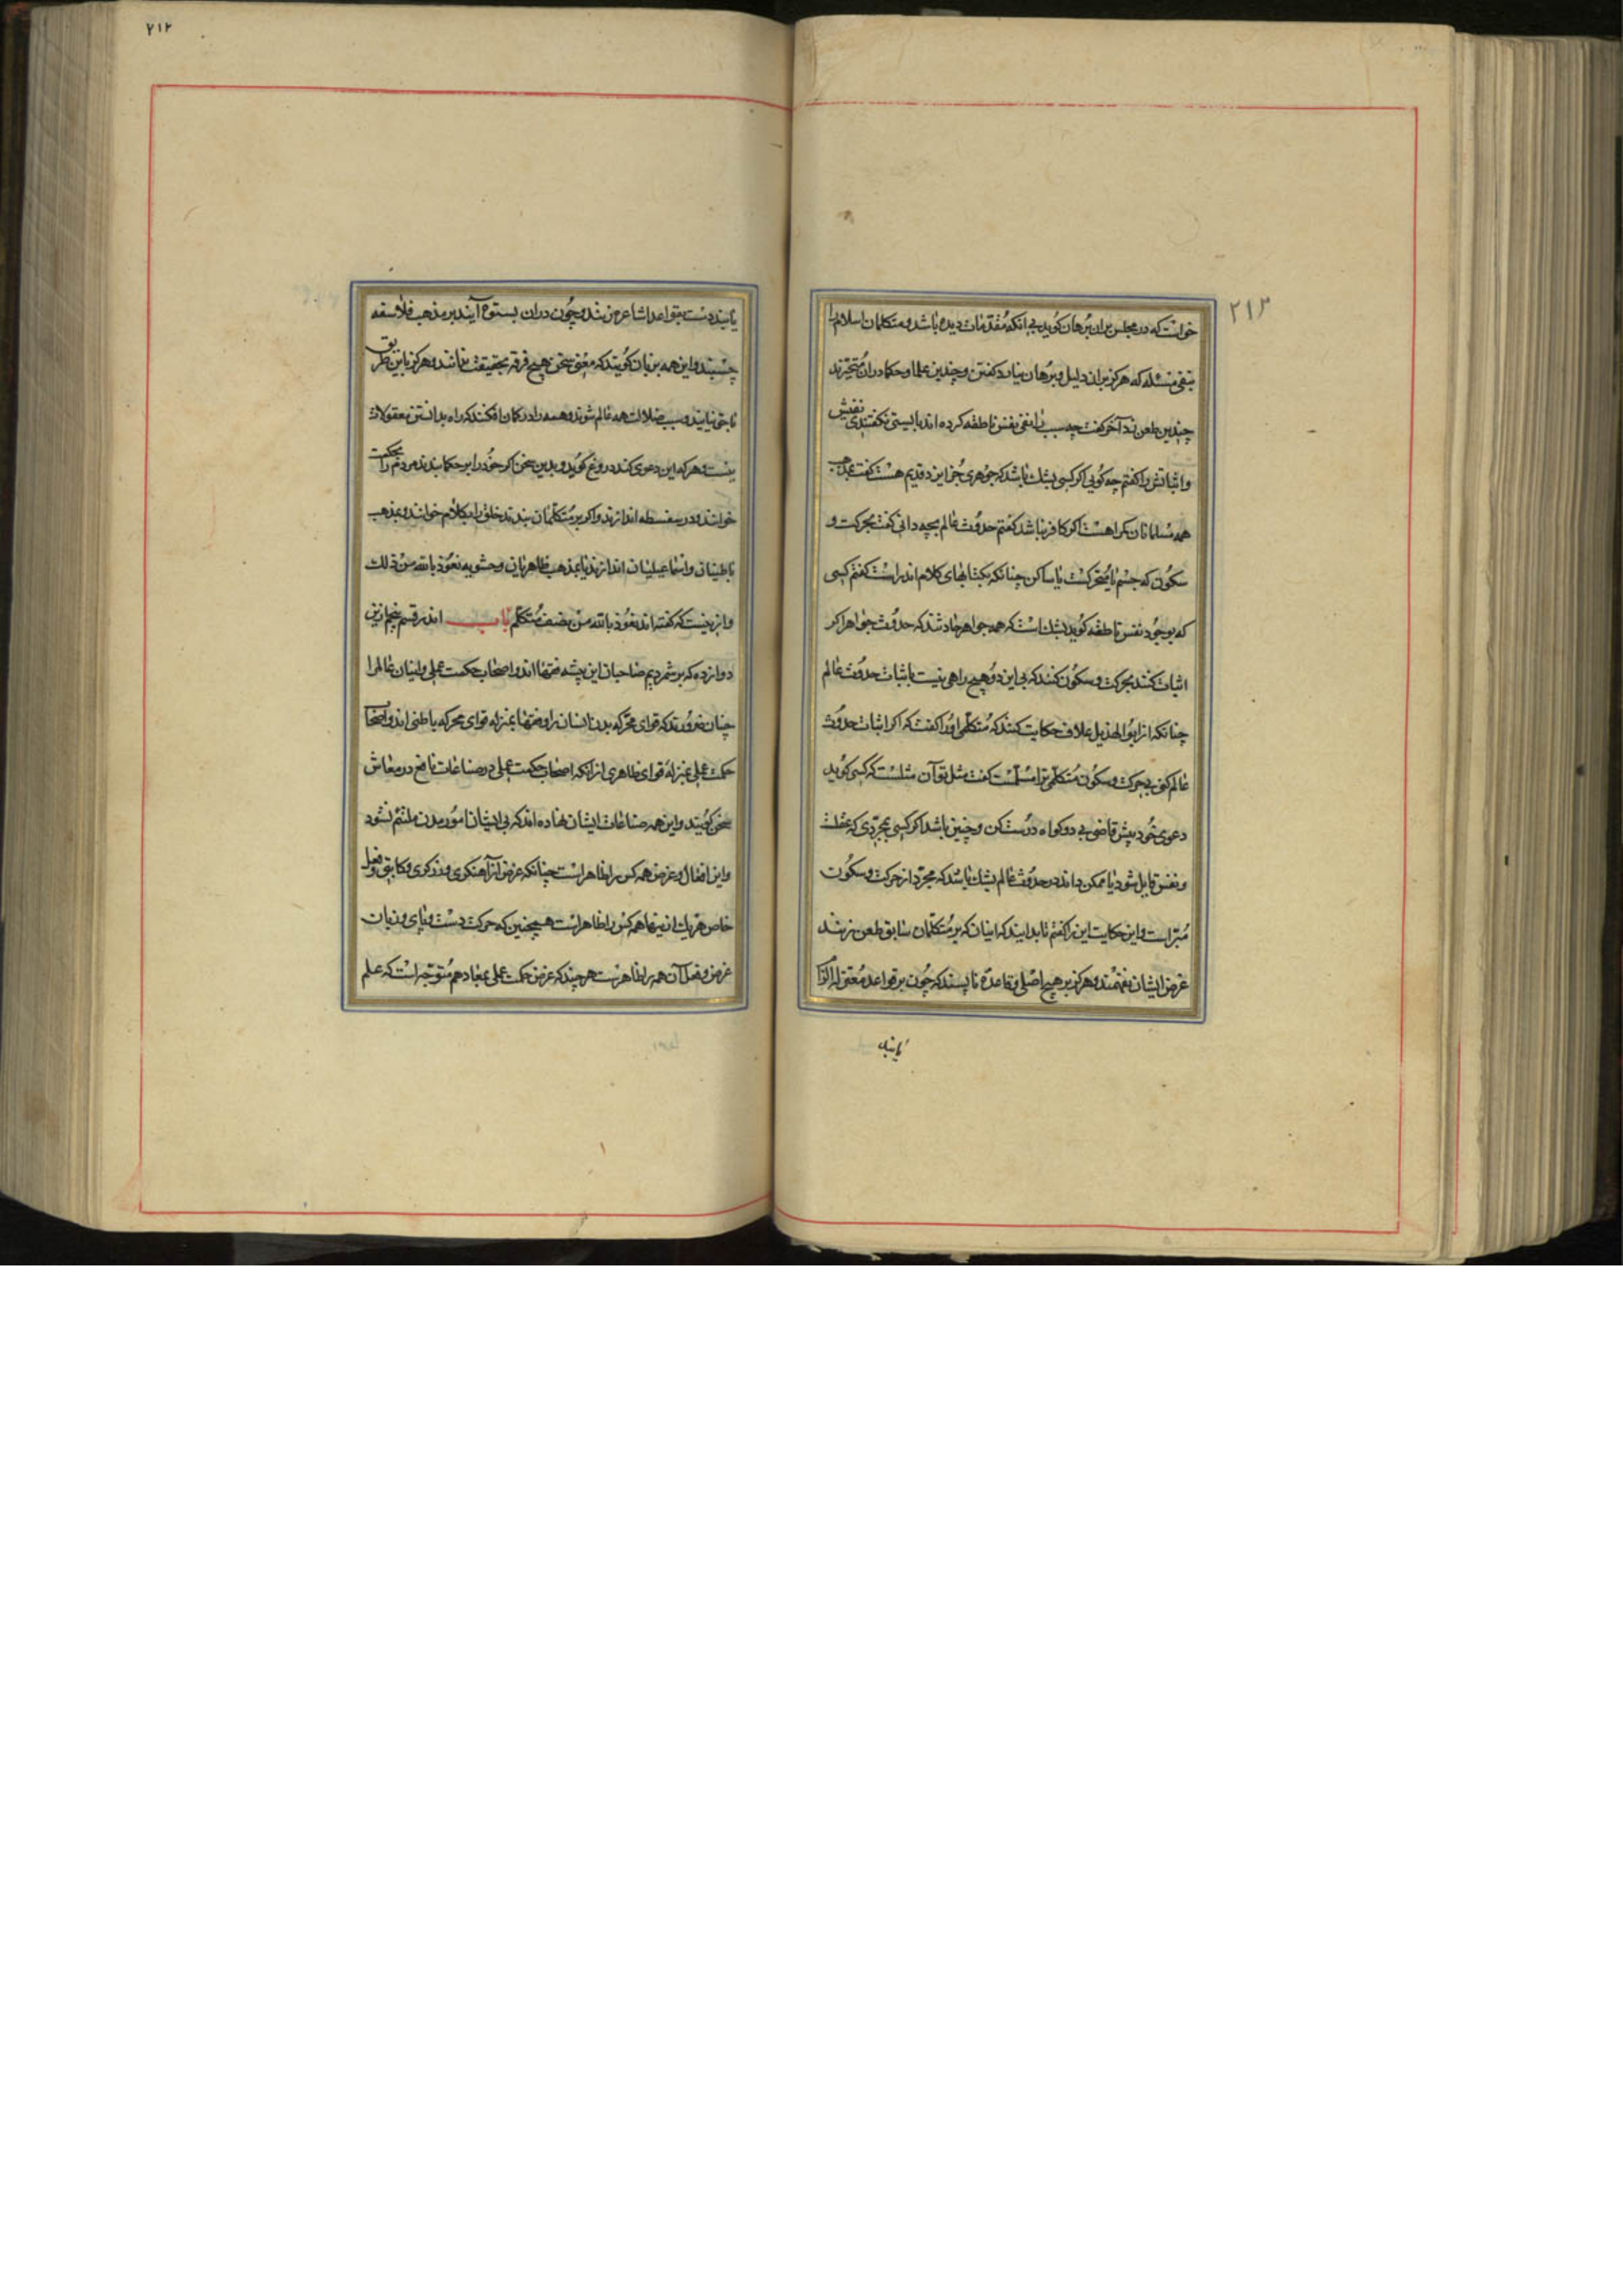 ۲۱۳
خواست که در مجلس بران برهان گوید بی انکه مقدمات دیده باشد و متکلمان اسلام را
بنفی مسئله که هرکز بران دلیل و برهان نیارد کفتن و چندین علما و حکما دران متحیرند
چندین طعن زد آخر کفت چه سبب را نفی نفس ناطقه کرده اند بایستی نکفتندی نفیش
و اثباتش را کفتم چه کویی اکر کسی بشک باشد که جوهری جز ایزد قدیم هست کفت بمذهب
همه مسلمانان کمراهست اکر کافر نباشد کفتم حدوث عالم بچه دانی کفت بحرکت و
سکون که جسم یا متحرکست یا ساکن چنانکه بکتابهای کلام اندر است کفتم کسی
که بوجود نفس ناطقه کوید بشک است که همه جواهر حادثند که حدوث جواهر اکر
اثبات کنند بحرکت و سکون کنند که بی این دو هیچ راهی نیست باثبات حدوث عالم
چنانکه از ابو الهذیل علاف حکایت کنند که متکلمی او را کفت که اکر اثبات حدوث
عالم کنی بی حرکت و سکون متکلمی ترا مسلمست کفت مثل تو آن مثلست که کسی کوید
دعوی خود پیش قاضی بی دو کواه درست کن و چنین باشد اکر کسی بمجردی که عقلست
و نفس قایل شود یا ممکن داند در حدوث عالم بشک باشد که مجرد از حرکت و سکون
مبراست و این حکایت این را کفتم تا بدانید که اینان که بر متکلمان سابق طعن زنند
غرض ایشان نفهمند و هرکز بر هیچ اصلی و قاعده نا پسند که چون بر قواعد معتزله الزا
یابند
۲۱۲
یابند دست بقواعد اشاعره زنند و چون دران بستوه آیند بر مذهب فلاسفه
چسبند و این همه بزبان کویند که معنی سخن هیچ فرقه بحقیقت ندانند و هرکز باین طریق
ناجی نیابند و سبب ضلالت همه عالم شوند و همه را در کمان افکنند که راه بدانستن معقولات
نیست و هر که این دعوی کند دروغ کوید و بدین سخن اکر خود را بر حکما بندند مردم را بحکمت
خوانند و در سفسطه اندازند و اکر بر متکلمان بندند خلق را بکلام خوانند و بمذهب
باطنیان و اسماعیلیان اندازند یا بمذهب ظاهریان و حشویه نعوذ بالله من ذلک
و ازینست که کفته اند نعوذ بالله من نصف متکلم باب اندر قسم پنجم ازین
دوازده که بر شمردیم صاحبان این پیشه فقها اند و اصحاب حکمت عملی و اینان عالم را
چنان ضرورند که قوای محرکه بدن انسان را و فقها بمنزله قوای محرکه باطنی اند و اصحاب
حکمت عملی بمنزله قوای ظاهری از انکه اصحاب حکمت عملی در صناعات نافع در معاش
سخن کویند و این همه صناعات ایشان نهاده اند که بی ایشان امور مدن ملتئم نشود
و این افعال و غرض همه کس را ظاهر است چنانکه غرض از آهنکری و زرکری و کتابتی و فعل
خاص هر یک از ینها همه کس را ظاهر است همچنین که حرکت دست و پای و زبان
غرض و فعل آن همه را ظاهرست هر چند که غرض حکمت عملی بمعاد هم متوجه است که علم